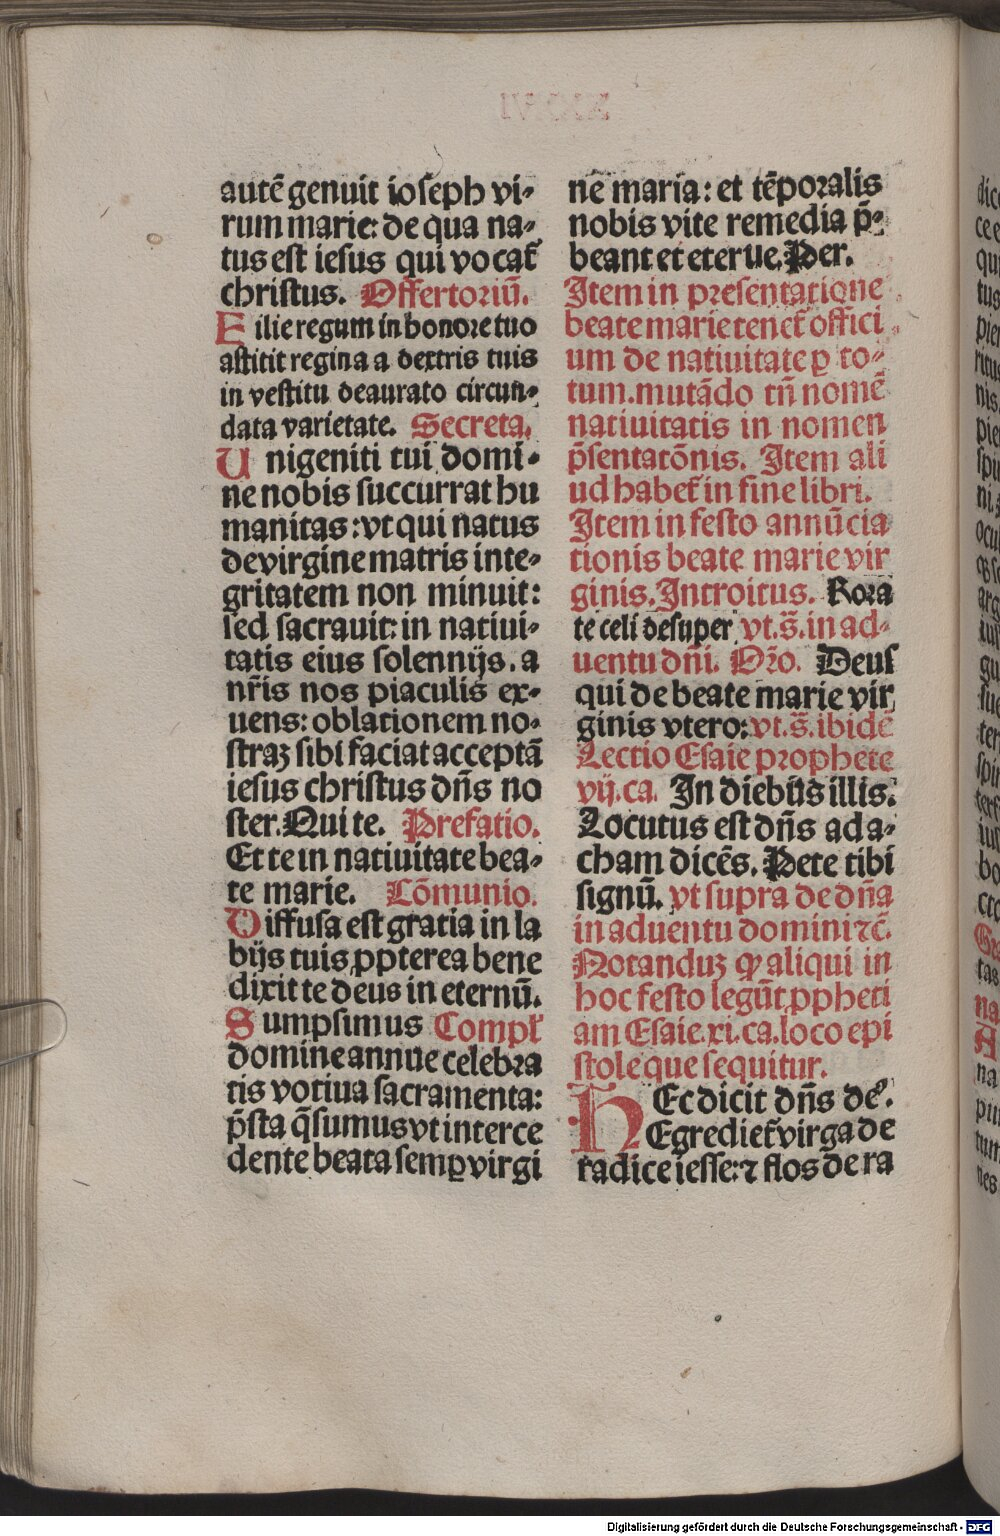 autē genuit ioseph vi-
rum marie: de qua na-
tus est iesus qui vocat̄
christus. Offertoriū.
Eilie regum in honore tuo
astitit regina a dextris tuis
in vestitu deaurato circun-
data varietate. Secreta.
Unigeniti tui domi-
ne nobis succurrat hu
manitas: vt qui natus
de virgine matris inte-
gritatem non minuit:
sed sacrauit: in natiui-
tatis eius solennijs. a
nr̄is nos piaculis ex-
uens: oblationem no-
straz sibi faciat acceptā
iesus christus dn̄s no
ster. Qui te. Prefatio.
Et te in natiuitate bea-
te marie. Cōmunio.
Diffusa est gratia in la
bijs tuis ꝓpterea bene
dixit te deus in eternū.
Sumpsimus Compl̄
domine annue celebra
tis votiua sacramenta:
p̄sta q̄sumus vt interce
dente beata semꝑ virgi
nē maria: et tēporalis
nobis vite remedia p̄-
beant et eterue. Per.
Item in presentatione
beate marie tenet̄ offici
um de natiuitate ꝑ to-
tum. mutādo tn̄ nomē
natiuitatis in nomen
p̄sentatōnis. Item ali
ud habet̄ in fine libri.
Item in festo annūcia
tionis beate marie vir
ginis. Introitus. Rora
te celi desuper vt. s̄. in ad-
uentu dn̄i. Or̄o. Deus
qui de beate marie vir
ginis vtero: vt. s̄. ibidē
Lectio Esaie prophete
vij. ca. In diebus illis.
Locutus est dn̄s ad a-
cham dicēs. Pete tibi
signū. vt supra de dn̄a
in aduentu domini ⁊c̄.
Notanduz ꝙ aliqui in
hoc festo legūt ꝓpheti
am Esaie. xi. ca. loco epi
stole que sequitur.
HEc dicit dn̄s deꝰ.
Egrediet̄ virga de
radice iesse: ⁊ flos de ra
Digitalisierung gefördert durch die Deutsche Forschungsgemeinschaft - DFG